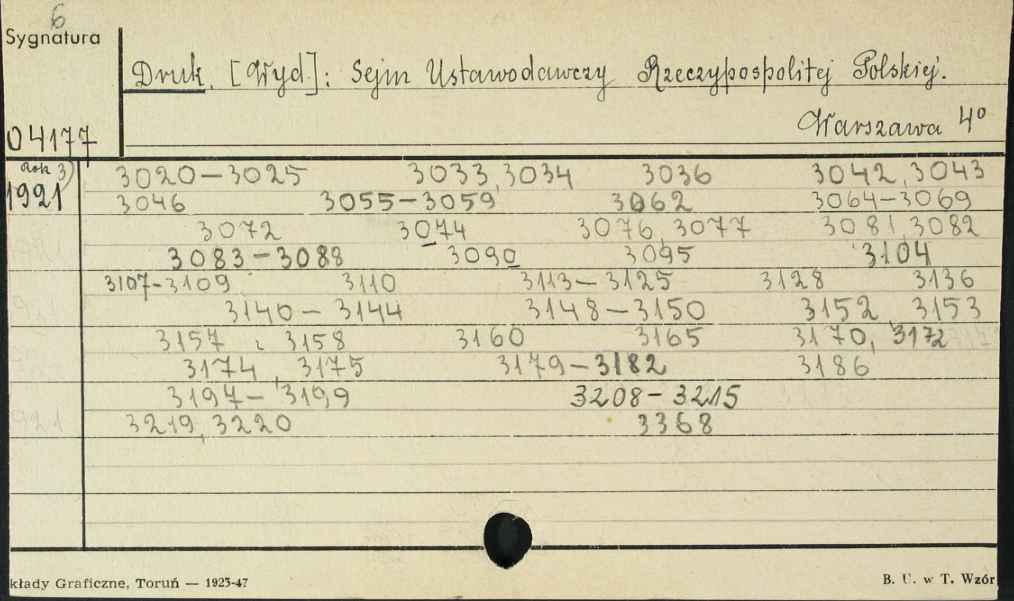 6
Sygnatura
Druk. [Wyd.]: Sejm Ustawodawczy Rzeczypospolitej Polskiej.
04177 Warszawa 4°
Rok 3) 3020–3025 3033, 3034 3036 3042, 3043
1921 3046 3055–3059 3062 3064–3069
3072 3074 3076, 3077 3081, 3082
3083–3088 3090 3095 3104
3107–3109 3110 3113–3125 3128 3136
3140–3144 3148–3150 3152, 3153
3157, 3158 3160 3165 3170, 3172
3174, 3175 3179–3182 3186
3197–3199 3208–3215
3219, 3220 3368
kłady Graficzne, Toruń — 1923-47 B. U. w T. Wzór